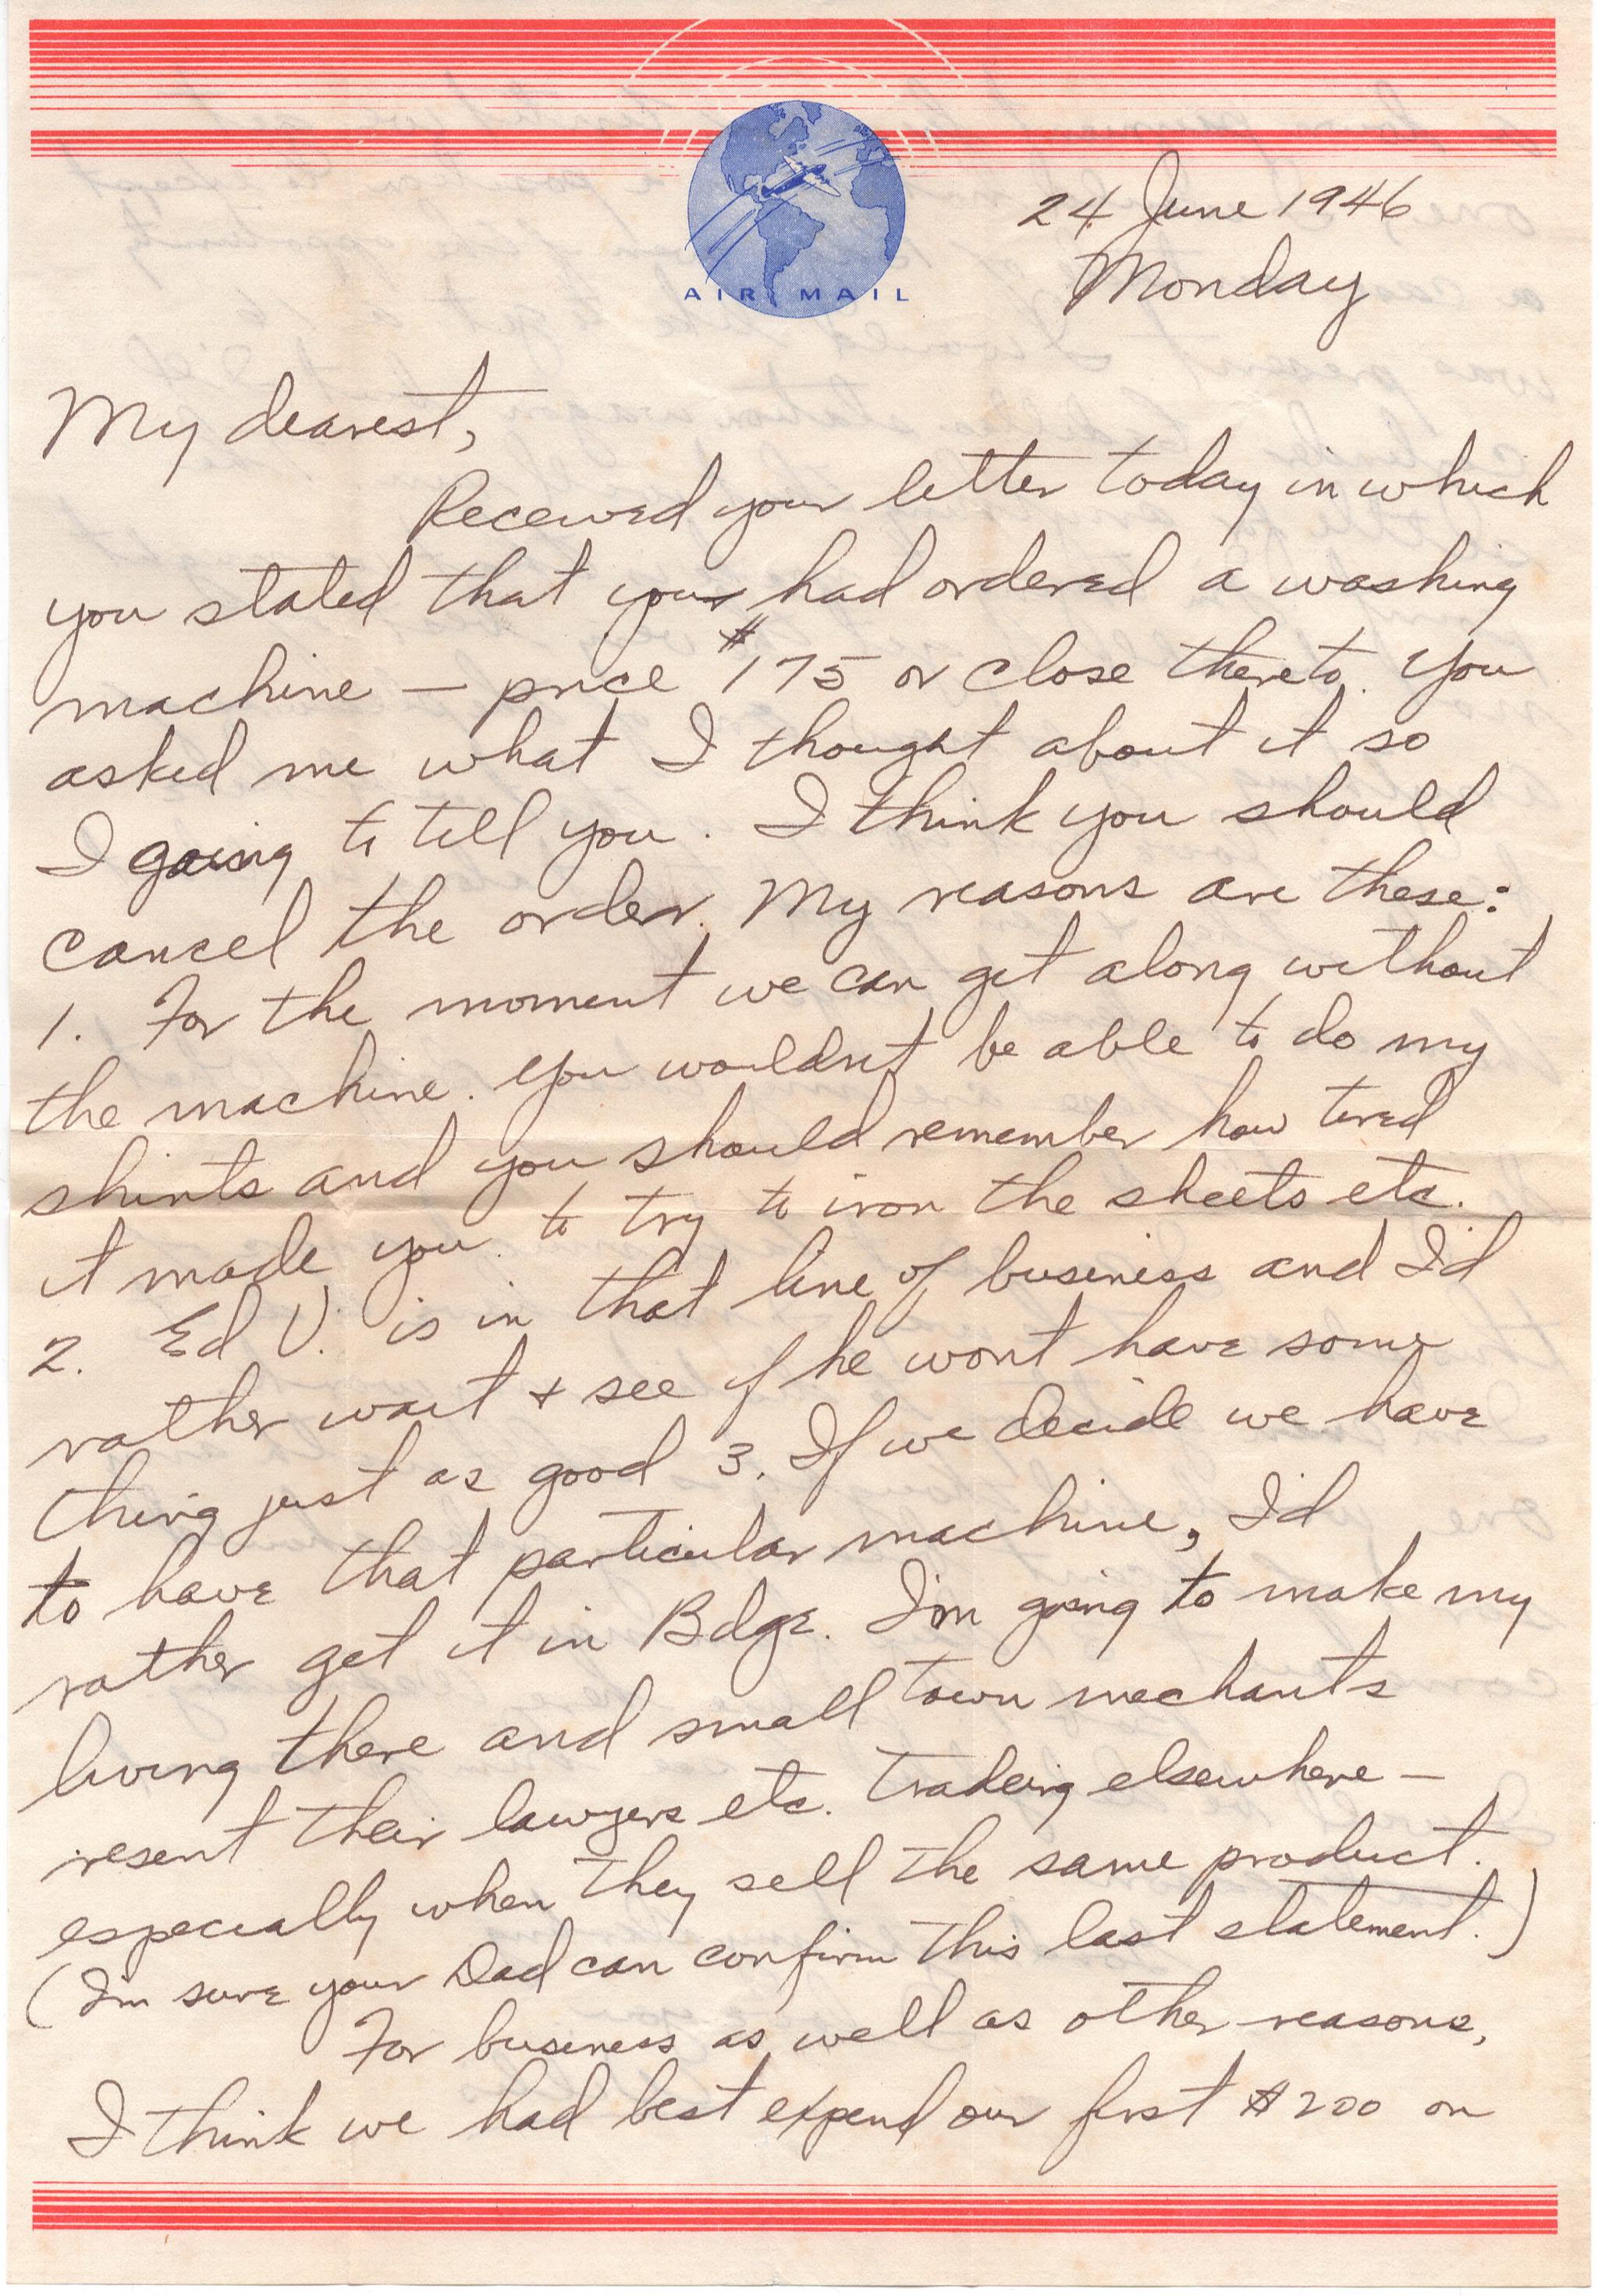 AIR MAIL
24 June 1946
Monday
My dearest,
Received your letter today in which
you stated that you had ordered a washing
machine — price $175 or close thereto. You
asked me what I thought about it so
I going to tell you. I think you should
cancel the order. My reasons are these:
1. For the moment we can get along without
the machine. You wouldn't be able to do my
shirts and you should remember how tired
it made you to try to iron the sheets etc.
2. Ed V. is in that line of business and I'd
rather wait + see if he wont have some
thing just as good 3. If we decide we have
to have that particular machine, I'd
rather get it in Bdge. I'm going to make my
living there and small town mechants
resent their lawyers etc. trading elsewhere —
especially when they sell the same product.
(I'm sure your Dad can confirm this last statement.)
For business as well as other reasons,
I think we had best expend our first $200 on